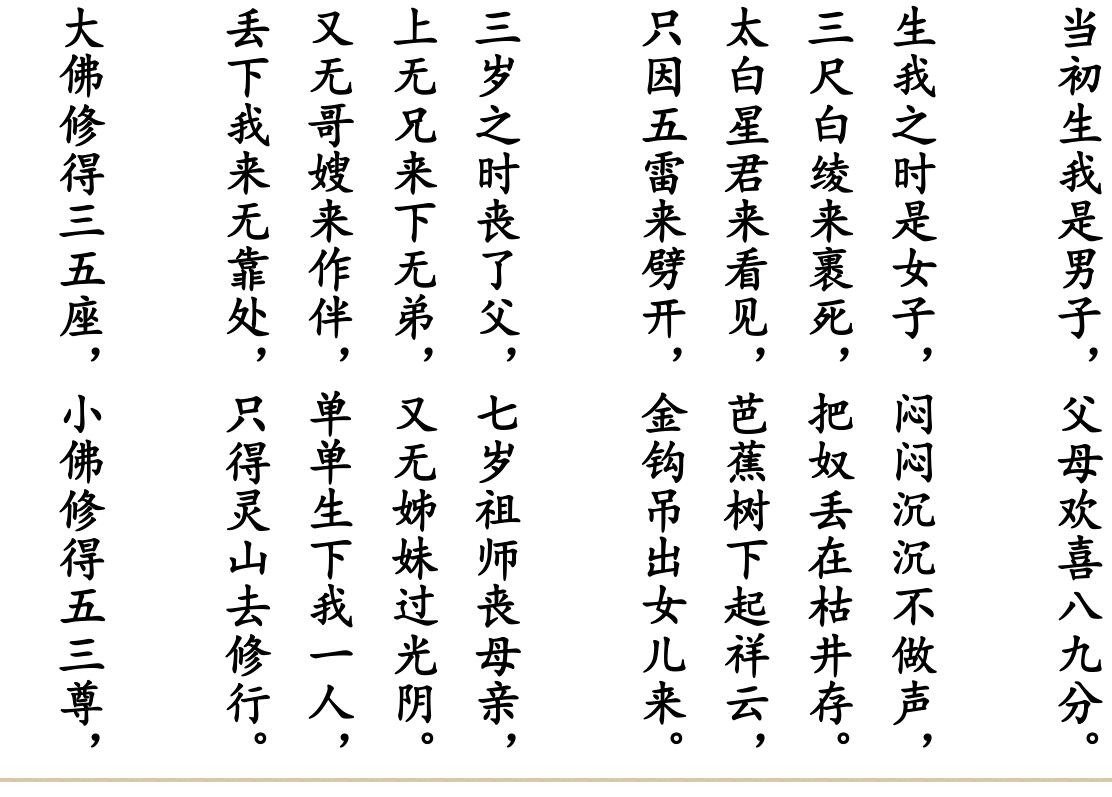 当初生我是男子，父母欢喜八九分。
生我之时是女子，闷闷沉沉不做声，
三尺白绫来裹死，把奴丢在枯井存。
太白星君来看见，芭蕉树下起祥云，
只因五雷来劈开，金钩吊出女儿来。
三岁之时丧了父，七岁祖师丧母亲，
上无兄来下无弟，又无姊妹过光阴。
又无哥嫂来作伴，单单生下我一人，
丢下我来无靠处，只得灵山去修行。
大佛修得三五座，小佛修得五三尊，